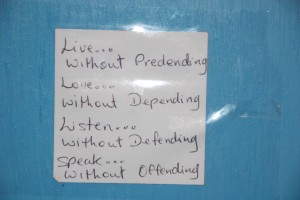 Live...
without Predending
Love...
without Depending
Listen...
without Defending
Speak...
without Offending